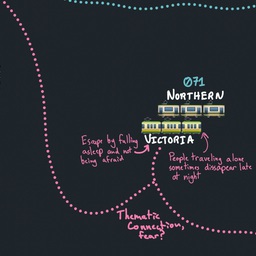 071
NORTHERN
VICTORIA
Escape by falling
asleep and not
being afraid
People traveling alone
sometimes dissapear late
at night
Thematic
Connection,
fear?